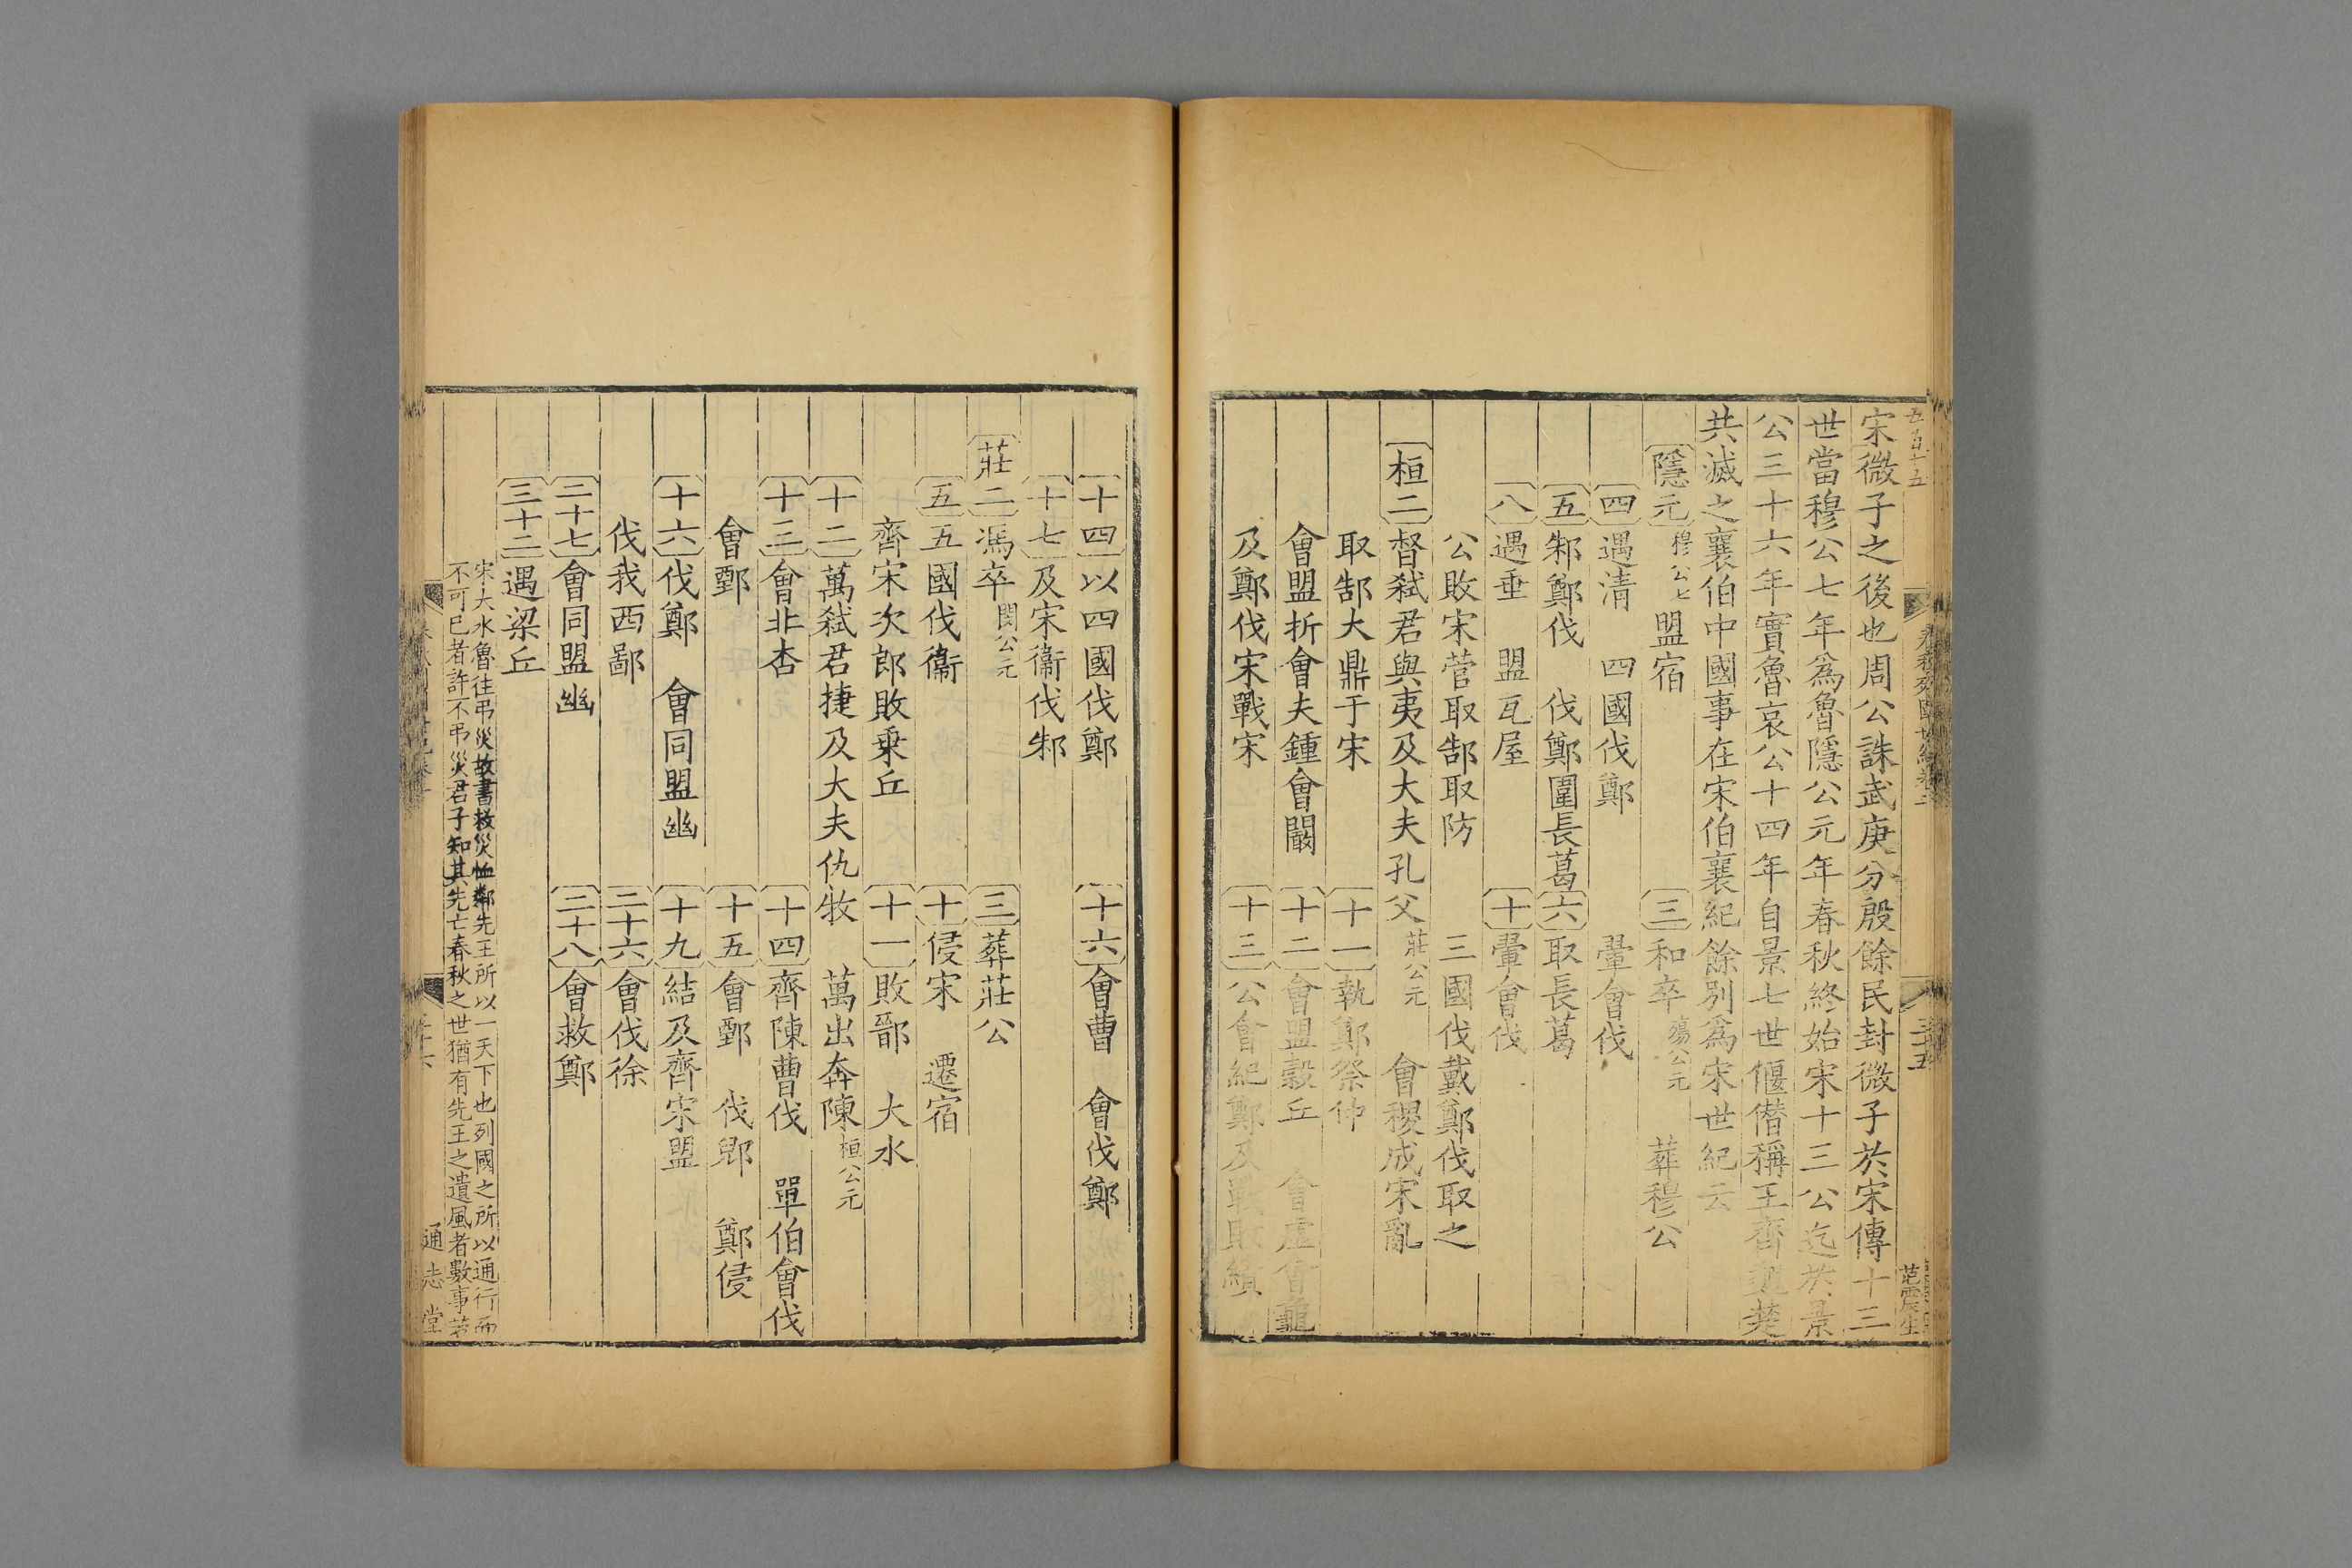 宋微子之後也周公誅武庚分殷餘民封微子於宋傳十三
世當穆公七年爲魯隱公元年春秋終始宋十三公迄於景
公三十六年實魯哀公十四年自景七世偃僭稱王齊魏楚
共滅之襄伯中國事在宋伯襄紀餘別爲宋世紀云
隱元 穆公七 盟宿 三 和卒 殤公元 葬穆公
四 遇清 四國伐鄭 翬會伐
五 邾鄭伐 伐鄭圍長葛 六 取長葛
八 遇垂 盟瓦屋 十 翬會伐
公敗宋菅取郜取防 三國伐戴鄭伐取之
桓二 督弑君與夷及大夫孔父 莊公元 會稷成宋亂
取郜大鼎于宋 十一 執鄭祭仲
會盟折會夫鍾會闞 十二 會盟穀丘 會虛會龜
及鄭伐宋戰宋 十三 公會紀鄭及戰敗績
十四 以四國伐鄭 十六 會曹 會伐鄭
十七 及宋衞伐邾
莊二 馮卒 閔公元 三 葬莊公
五 五國伐衞 十 侵宋 遷宿
齊宋次郎敗乗丘 十一 敗鄑 大水
十二 萬弑君捷及大夫仇牧 萬出奔陳 桓公元
十三 會北杏 十四 齊陳曹伐 單伯會伐
會鄄 十五 會鄄 伐郳 鄭侵
十六 伐鄭 會同盟幽 十九 結及齊宋盟
伐我西鄙 二十六 會伐徐
二十七 會同盟幽 二十八 會救鄭
三十二 遇梁丘
宋大水魯往弔災故書救災恤鄰先王所以一天下也列國之所以通行而
不可已者許不弔災君子知其先亡春秋之世猶有先王之遺風者數事若
通志堂